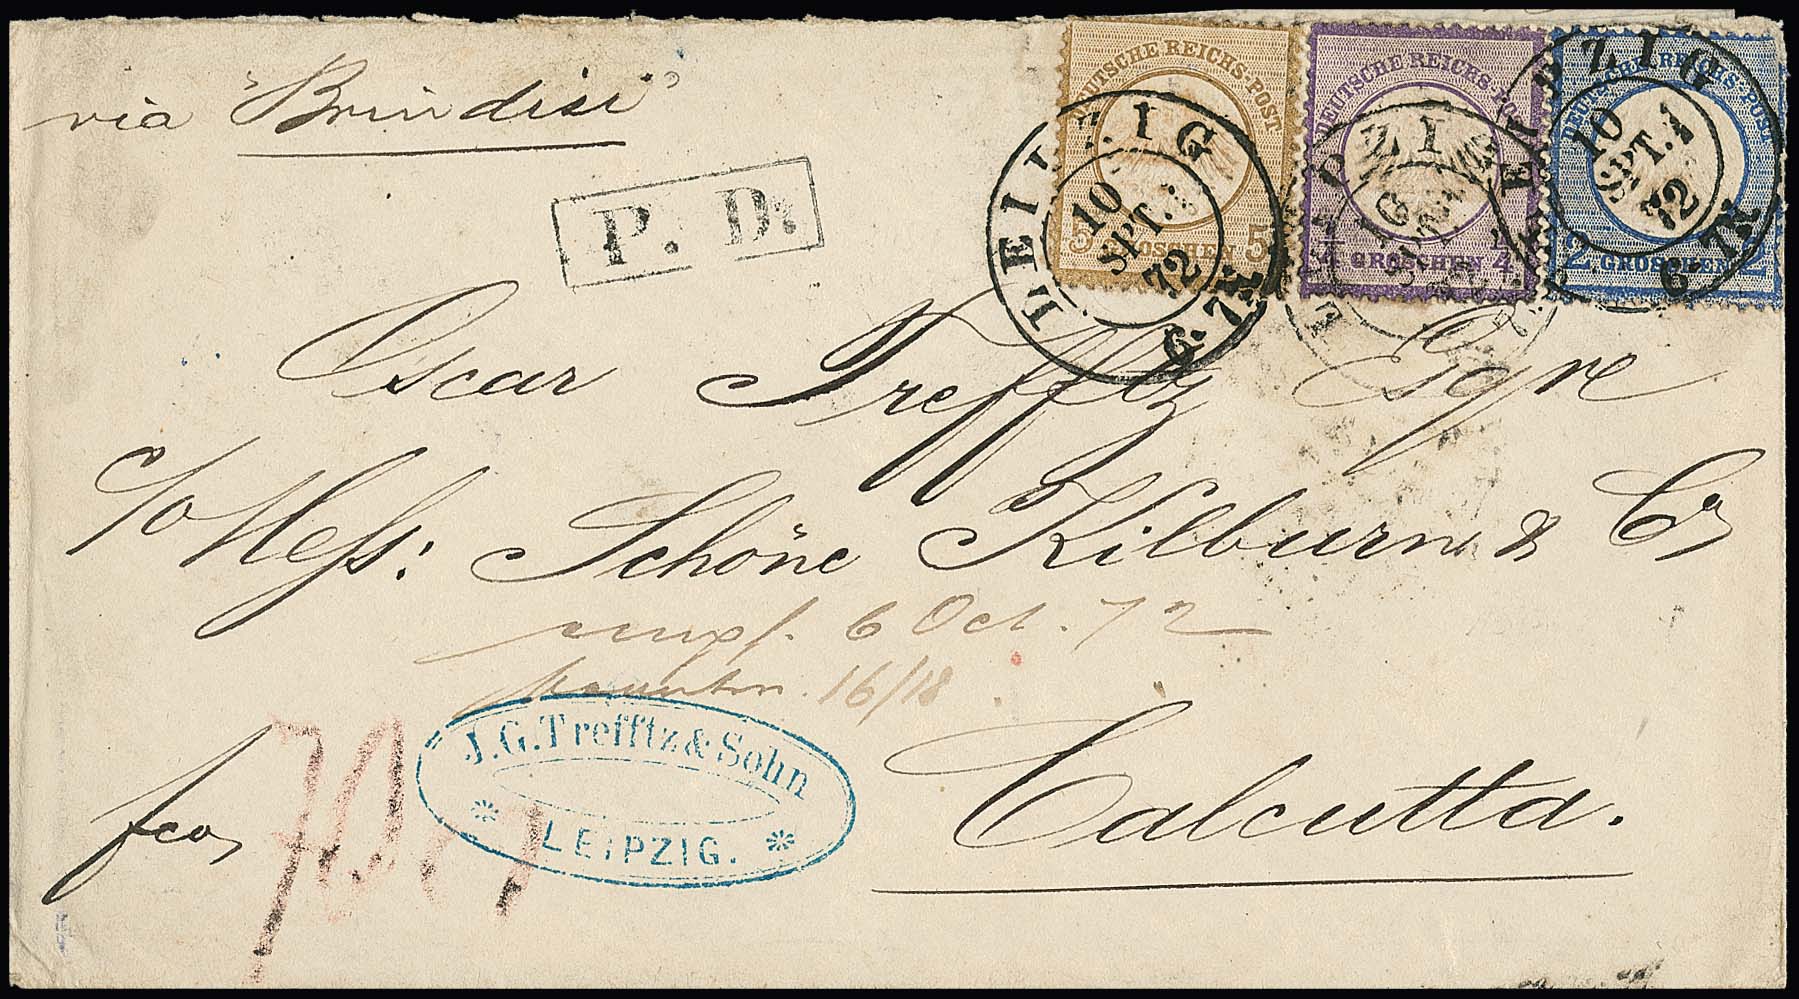 via "Brindisi"
P. D.
DEUTSCHE REICHS-POST
5 GROSCHEN 5
DEUTSCHE REICHS-POST
1/4 GROSCHEN 1/4
DEUTSCHE REICHS-POST
2 GROSCHEN 2
LEIPZIG
10
SPT.
72
LEIPZIG
10
SPT.
72
LEIPZIG
10
SPT. 1
72
Oscar Trefftz Esqre
c/o Mess: Schöne Kilburn & Co
empf. 6 Oct. 72
beantw. 16/18.
Calcutta.
fco
J.G.Trefftz & Sohn
LEIPZIG.